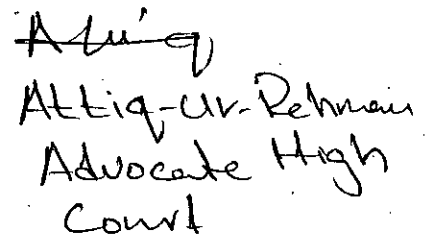 Attiq-Ur-Rehman
Advocate High
Court